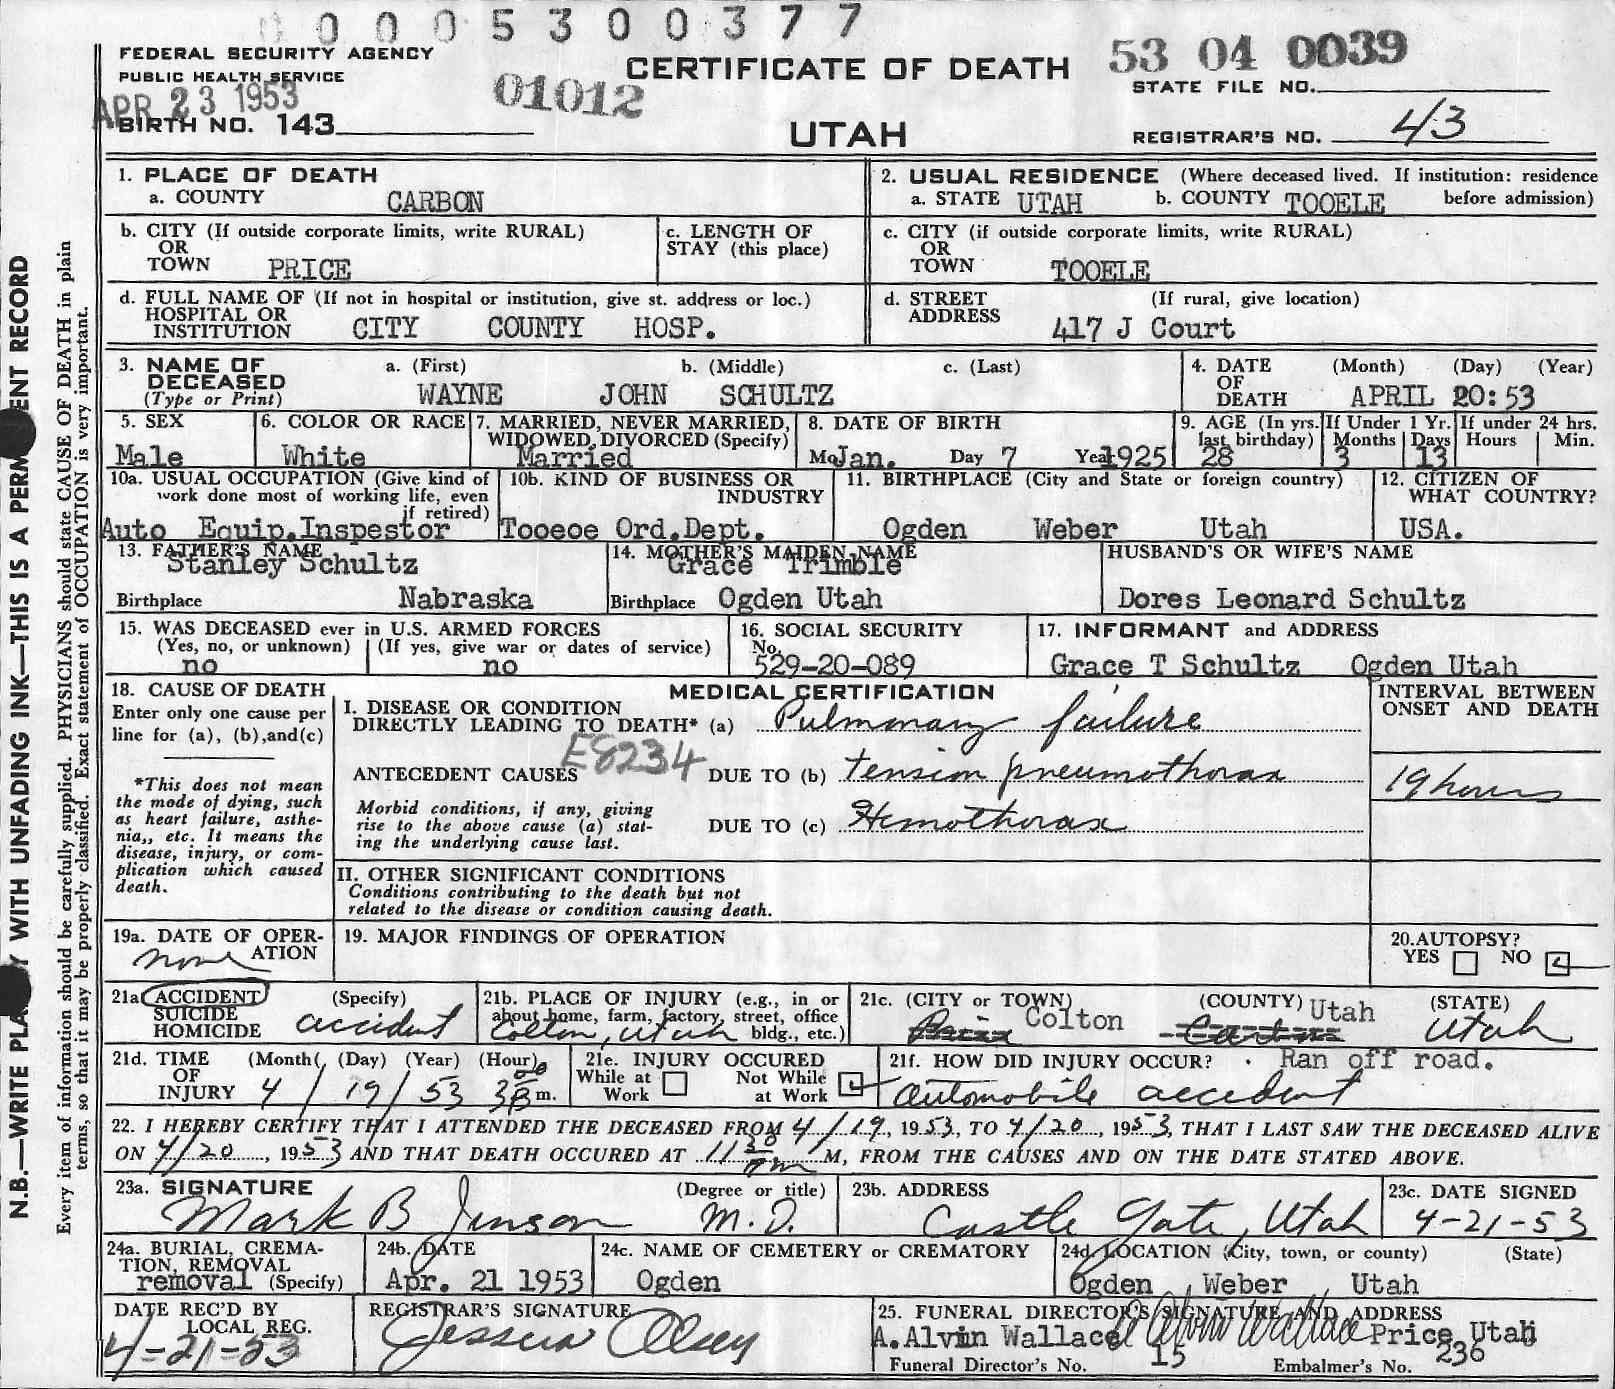 0 0 0 5 3 0 0 3 7 7
FEDERAL SECURITY AGENCY
PUBLIC HEALTH SERVICE
APR 23 1953
BIRTH NO. 143
01012
CERTIFICATE OF DEATH
UTAH
53 04 0039
STATE FILE NO.
REGISTRAR'S NO. 43
N.B.—WRITE PLA Y WITH UNFADING INK—THIS IS A PERM ENT RECORD
Every item of information should be carefully supplied. PHYSICIANS should state CAUSE OF DEATH in plain
terms, so that it may be properly classified. Exact statement of OCCUPATION is very important.
1. PLACE OF DEATH
a. COUNTY CARBON
2. USUAL RESIDENCE (Where deceased lived. If institution: residence
a. STATE UTAH b. COUNTY TOOELE before admission)
b. CITY (If outside corporate limits, write RURAL)
OR
TOWN PRICE
c. LENGTH OF
STAY (this place)
c. CITY (if outside corporate limits, write RURAL)
OR
TOWN TOOELE
d. FULL NAME OF (If not in hospital or institution, give st. address or loc.)
HOSPITAL OR
INSTITUTION CITY COUNTY HOSP.
d. STREET (If rural, give location)
ADDRESS 417 J Court
3. NAME OF DECEASED (Type or Print)
a. (First) b. (Middle) c. (Last)
WAYNE JOHN SCHULTZ
4. DATE OF DEATH (Month) (Day) (Year)
APRIL 20:53
5. SEX
Male
6. COLOR OR RACE
White
7. MARRIED, NEVER MARRIED,
WIDOWED, DIVORCED (Specify)
Married
8. DATE OF BIRTH
Mo Jan. Day 7 Year 1925
9. AGE (In yrs. last birthday) 28
If Under 1 Yr. Months 3 Days 13
If under 24 hrs. Hours Min.
10a. USUAL OCCUPATION (Give kind of
work done most of working life, even
if retired)
Auto Equip.Inspestor
10b. KIND OF BUSINESS OR
INDUSTRY
Tooeoe Ord.Dept.
11. BIRTHPLACE (City and State or foreign country)
Ogden Weber Utah
12. CITIZEN OF
WHAT COUNTRY?
USA.
13. FATHER'S NAME
Stanley Schultz
Birthplace Nabraska
14. MOTHER'S MAIDEN NAME
Grace Trimble
Birthplace Ogden Utah
HUSBAND'S OR WIFE'S NAME
Dores Leonard Schultz
15. WAS DECEASED ever in U.S. ARMED FORCES
(Yes, no, or unknown) (If yes, give war or dates of service)
no no
16. SOCIAL SECURITY
No.
529-20-089
17. INFORMANT and ADDRESS
Grace T Schultz Ogden Utah
18. CAUSE OF DEATH
Enter only one cause per
line for (a), (b),and(c)
*This does not mean
the mode of dying, such
as heart failure, asthe-
nia,, etc. It means the
disease, injury, or com-
plication which caused
death.
MEDICAL CERTIFICATION
I. DISEASE OR CONDITION
DIRECTLY LEADING TO DEATH* (a) Pulmonary failure
E8234
ANTECEDENT CAUSES DUE TO (b) tension pneumothorax
Morbid conditions, if any, giving
rise to the above cause (a) stat-
ing the underlying cause last.
DUE TO (c) Hemothorax
INTERVAL BETWEEN
ONSET AND DEATH
19 hours
II. OTHER SIGNIFICANT CONDITIONS
Conditions contributing to the death but not
related to the disease or condition causing death.
19a. DATE OF OPER-
ATION
none
19. MAJOR FINDINGS OF OPERATION
20.AUTOPSY?
YES NO
21a ACCIDENT
SUICIDE
HOMICIDE
(Specify)
accident
21b. PLACE OF INJURY (e.g., in or
about home, farm, factory, street, office
bldg., etc.)
Colton, Utah
21c. (CITY or TOWN) (COUNTY) (STATE)
Price Colton Carbon Utah Utah
21d. TIME OF INJURY (Month) (Day) (Year) (Hour)
4 / 19 / 53 m.
21e. INJURY OCCURED
While at Work Not While at Work
21f. HOW DID INJURY OCCUR? Ran off road.
Automobile accident
22. I HEREBY CERTIFY THAT I ATTENDED THE DECEASED FROM 4/19, 1953, TO 4/20, 1953, THAT I LAST SAW THE DECEASED ALIVE
ON 4/20, 1953 AND THAT DEATH OCCURED AT 11 30 M, FROM THE CAUSES AND ON THE DATE STATED ABOVE.
23a. SIGNATURE (Degree or title)
Mark B Jenson M.D.
23b. ADDRESS
Castle Gate, Utah
23c. DATE SIGNED
4-21-53
24a. BURIAL, CREMA-
TION, REMOVAL
removal (Specify)
24b. DATE
Apr. 21 1953
24c. NAME OF CEMETERY or CREMATORY
Ogden
24d LOCATION (City, town, or county) (State)
Ogden Weber Utah
DATE REC'D BY
LOCAL REG.
4-21-53
REGISTRAR'S SIGNATURE
25. FUNERAL DIRECTOR'S SIGNATURE AND ADDRESS
A.Alvin Wallace A Alvin Wallace Price Utah
Funeral Director's No. 15 Embalmer's No. 236